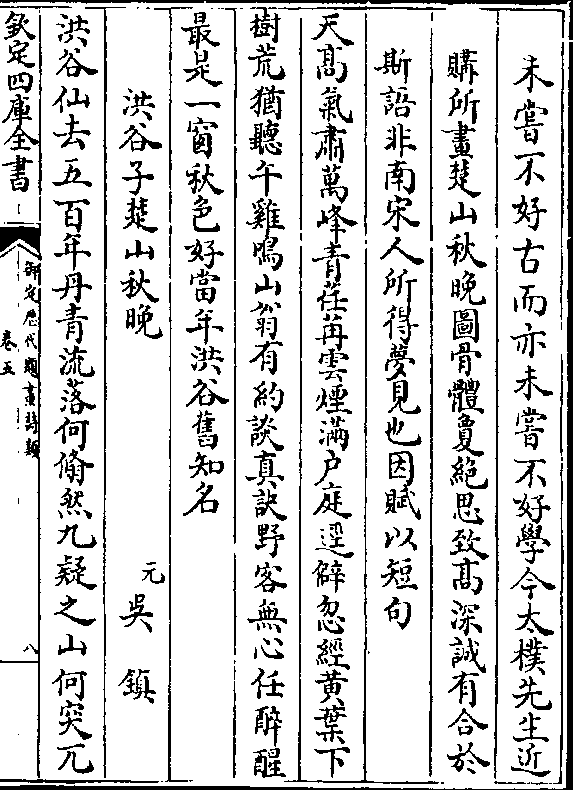 未嘗不好古而亦未嘗不好學今太樸先生近
購所畫楚山秋晚圖骨體夐絕思致髙深誠有合於
斯語非南宋人所得夢見也因賦以短句
天髙氣肅萬峰青荏苒雲煙滿户庭逕僻忽經黄葉下
樹荒猶聽午雞鳴山翁有約談真訣野客無心任醉醒
最是一窗秋色好當年洪谷舊知名
洪谷子楚山秋晚
元 吳鎮
洪谷仙去五百年丹青流落何翛然九疑之山何突兀
欽定四庫全書
御定歷代題畫詩類
卷五
八